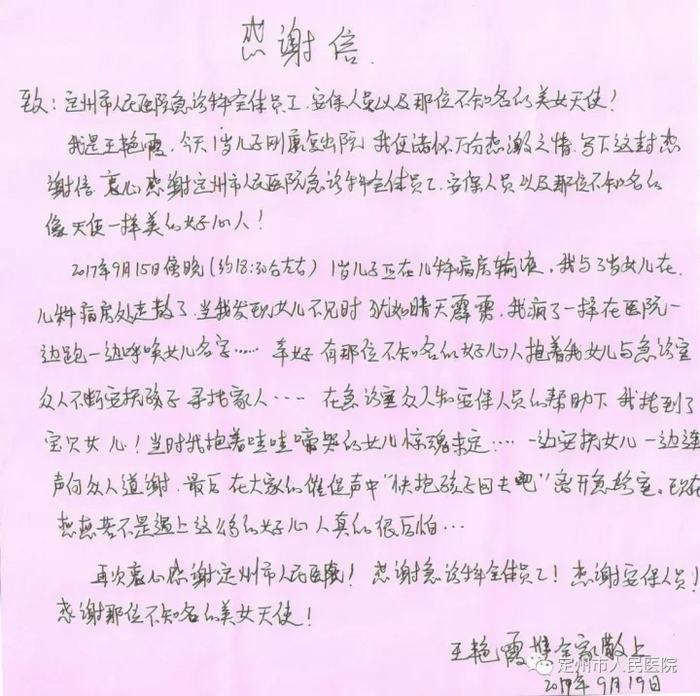 感谢信.
致：定州市人民医院急诊科全体员工、安保人员以及那位不知名的美女天使！
我是王艳霞，今天1岁儿子刚康复出院，我便满怀万分感激之情，写下这封感
谢信，衷心感谢定州市人民医院急诊科全体员工、安保人员以及那位不知名的
像天使一样美的好心人！
2017年9月15日傍晚（约18:30分左右）1岁儿子正在儿科病房输液，我与3岁女儿在
儿科病房处走散了，当我发现女儿不见时，犹如晴天霹雳，我疯了一样在医院一
边跑一边呼唤女儿名字……幸好有那位不知名的好心人抱着我女儿与急诊室
众人不断安抚孩子寻找家人……在急诊室众人和安保人员的帮助下，我找到了
宝贝女儿！当时我抱着哇哇啼哭的女儿惊魂未定……一边安抚女儿一边连
声向众人道谢，最后在大家的催促声中“快抱孩子回去吧”离开急诊室。现在
想想若不是遇上这么多的好心人真的很后怕…
再次衷心感谢定州市人民医院！感谢急诊科全体员工！感谢安保人员！
感谢那位不知名的美女天使！
王艳霞携全家敬上
2017年9月19日
定州市人民医院